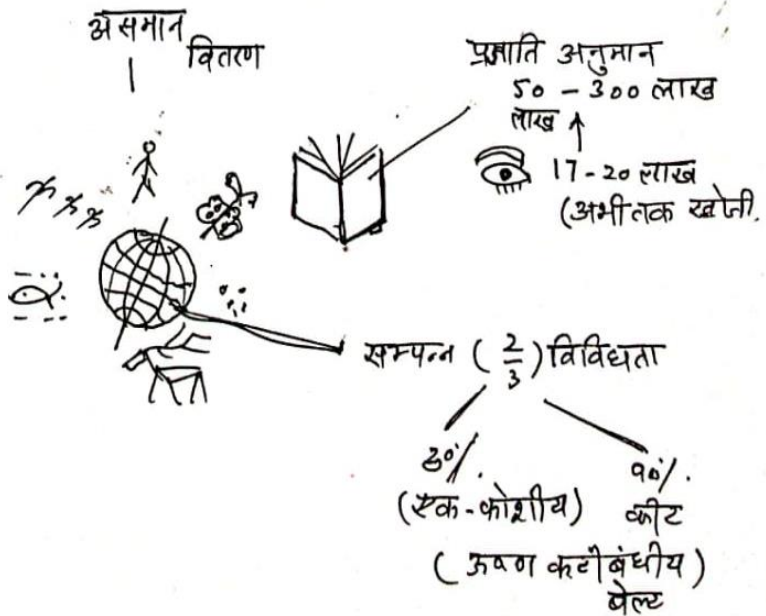 असमान
वितरण
प्रजाति अनुमान
50 - 300 लाख
लाख
17-20 लाख
(अभीतक खोजी.
सम्पन्न (2/3) विविधता
30%.
90%.
(एक-कोशीय) कीट
(ऊष्ण कटीबंधीय)
बेल्ट